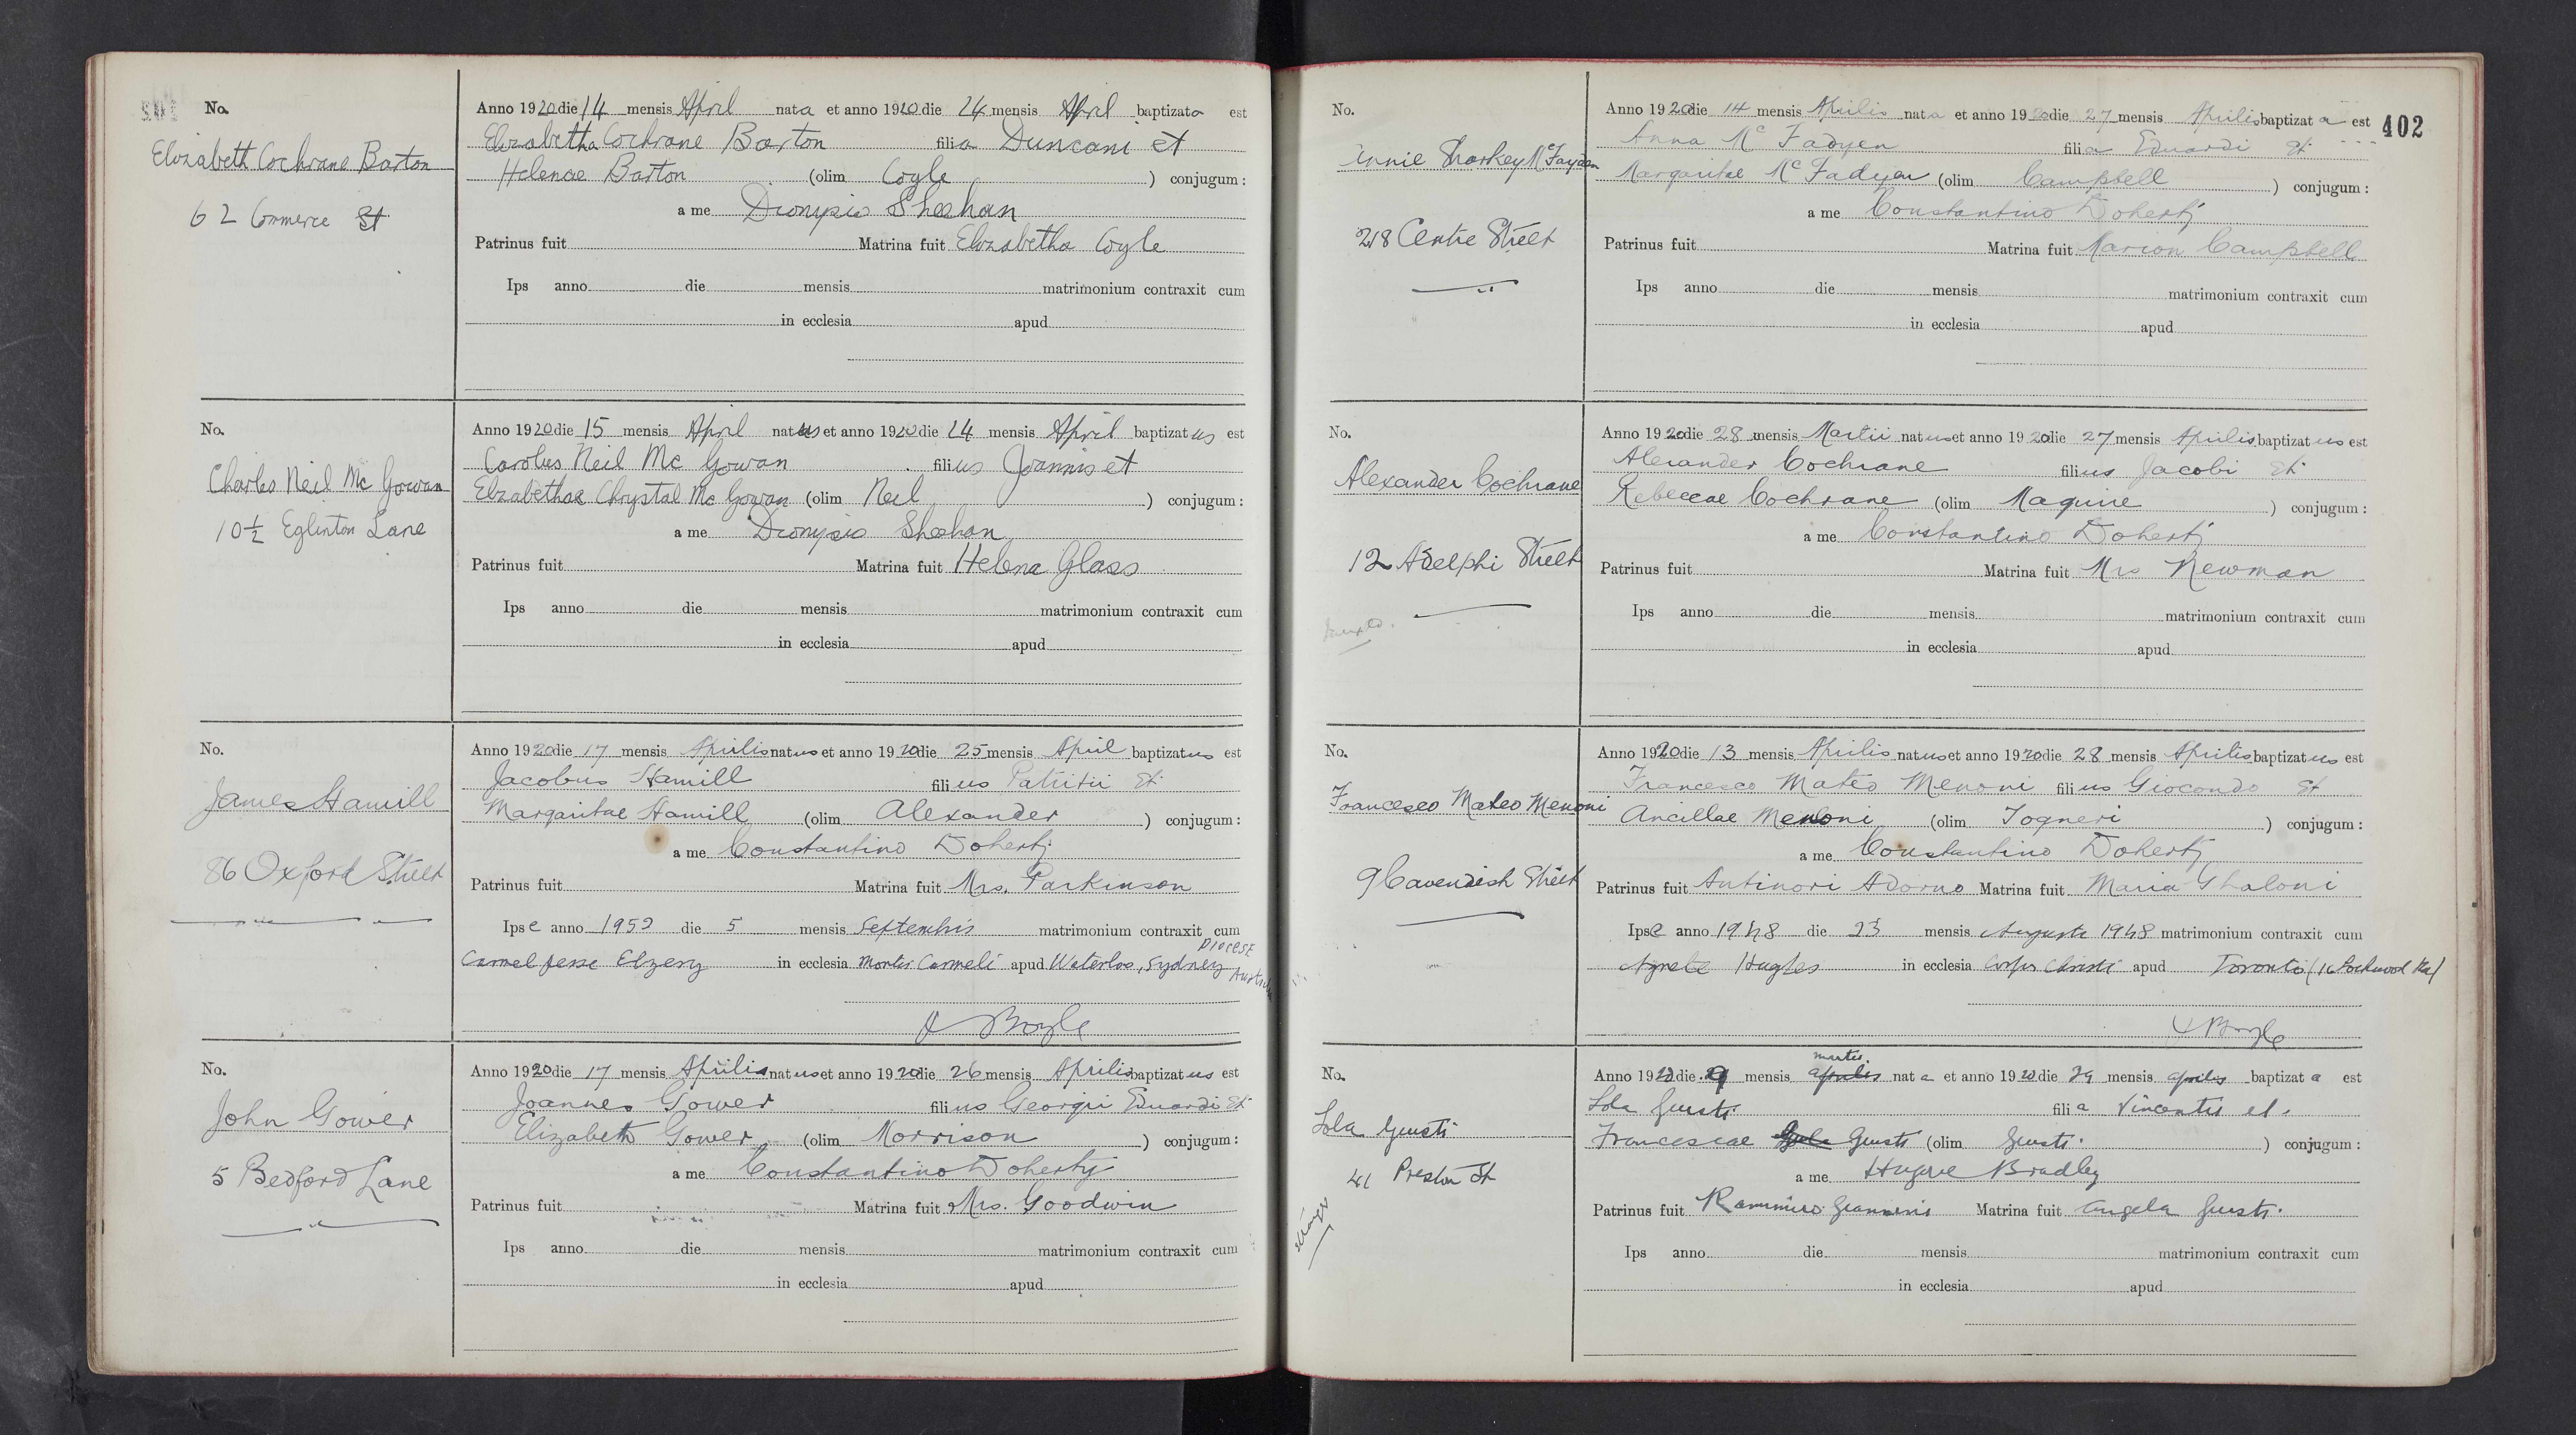 No.
Elizabeth Cochrane Barton
62 Commerce St
Anno 1920 die 14 mensis April nata et anno 1920 die 24 mensis April baptizata est
Elizabetha Cochrane Barton filia Duncani et
Helenae Barton (olim Coyle ) conjugum :
a me Dionysio Sheehan
Patrinus fuit Matrina fuit Elizabetha Coyle
Ips anno die mensis matrimonium contraxit cum
in ecclesia apud
No.
Charles Neil Mc Gowan
10½ Eglinton Lane
Anno 1920 die 15 mensis April natus et anno 1920 die 24 mensis April baptizatus est
Carolus Neil Mc Gowan filius Joannis et
Elizabethae Chrystal Mc Gowan (olim Neil ) conjugum :
a me Dionysio Sheehan
Patrinus fuit Matrina fuit Helena Glass
Ips anno die mensis matrimonium contraxit cum
in ecclesia apud
No.
James Hamill
86 Oxford Street
Anno 1920 die 17 mensis Aprilis natus et anno 1920 die 25 mensis April baptizatus est
Jacobus Hamill filius Patritii et
Margaritae Hamill (olim Alexander ) conjugum :
a me Constantino Doherty
Patrinus fuit Matrina fuit Mrs. Parkinson
Ipse anno 1953 die 5 mensis Septembris matrimonium contraxit cum
Carmel in ecclesia Montis Carmeli apud Waterloo, Sydney Diocese Australia
Boyle
No.
John Gower
5 Bedford Lane
Anno 1920 die 17 mensis Aprilis natus et anno 1920 die 26 mensis Aprilis baptizatus est
Joannes Gower filius Georgii Eduardi et
Elizabeth Gower (olim Morrison ) conjugum :
a me Constantino Doherty
Patrinus fuit Matrina fuit Mrs. Goodwin
Ips anno die mensis matrimonium contraxit cum
in ecclesia apud
402
No.
Annie Sharkey McFayden
218 Centre Street
Anno 1920 die 14 mensis Aprilis nata et anno 1920 die 27 mensis Aprilis baptizata est
Anna Mc Fadyen filia Eduardi et
Margaritae Mc Fadyen (olim Campbell ) conjugum :
a me Constantino Doherty
Patrinus fuit Matrina fuit Marion Campbell
Ips anno die mensis matrimonium contraxit cum
in ecclesia apud
No.
Alexander Cochrane
12 Adelphi Street
Anno 1920 die 28 mensis Martii natus et anno 1920 die 27 mensis Aprilis baptizatus est
Alexander Cochrane filius Jacobi et
Rebeccae Cochrane (olim Maguire ) conjugum :
a me Constantino Doherty
Patrinus fuit Matrina fuit Mrs Newman
Ips anno die mensis matrimonium contraxit cum
in ecclesia apud
No.
Francesco Mateo Menoni
9 Cavendish Street
Anno 1920 die 13 mensis Aprilis natus et anno 1920 die 28 mensis Aprilis baptizatus est
Francesco Mateo Menoni filius Giocondo et
Ancillae Menoni (olim Togneri ) conjugum :
a me Constantino Doherty
Patrinus fuit Antinori Adorno Matrina fuit Maria Ghaloni
Ipse anno 1948 die 23 mensis Augusti 1948 matrimonium contraxit cum
Hughes in ecclesia Corpus Christi apud Toronto (16 Rd)
Boyle
No.
Lola Giusti
41 Preston St
Anno 1920 die 9 mensis aprilis martii nata et anno 1920 die 29 mensis aprilis baptizata est
Lola Giusti filia Vincentii et
Francescae Giusti (olim Giusti ) conjugum :
a me Hugone Bradley
Patrinus fuit Rammiro Giannini Matrina fuit Angela Giusti
Ips anno die mensis matrimonium contraxit cum
in ecclesia apud